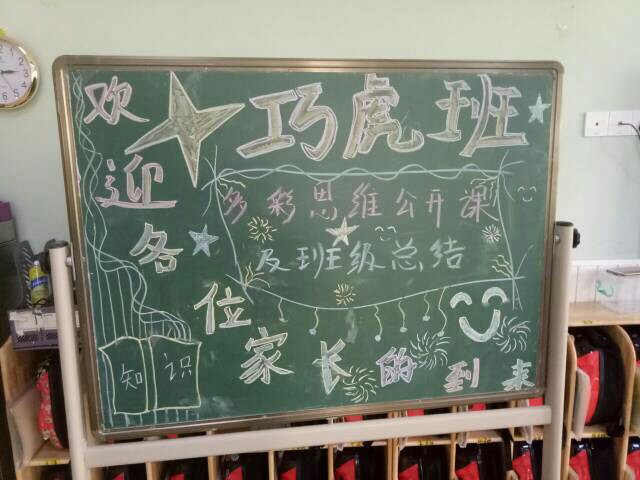 巧虎班
多彩思维公开课
及班级总结
欢迎各位家长的到来
知识